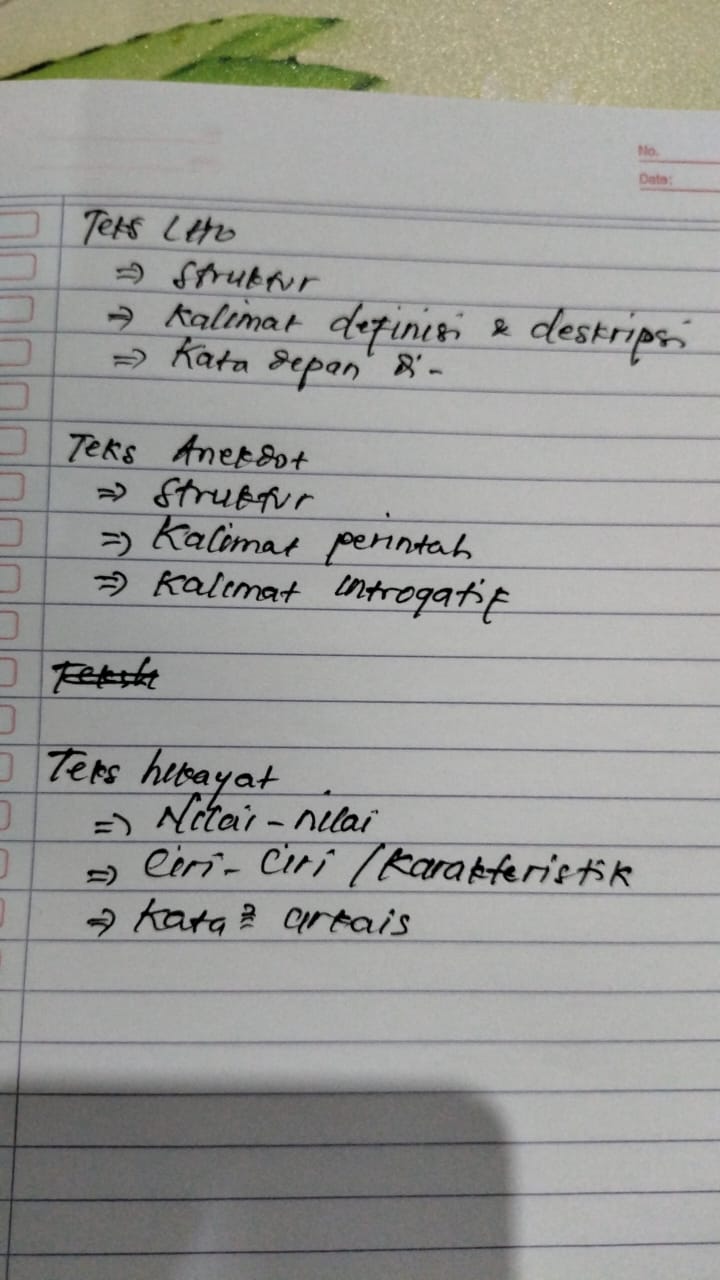 No.
Date:
Teks LHO
⇒ Struktur
⇒ Kalimat definisi & deskripsi
⇒ Kata depan di-
Teks Anekdot
⇒ Struktur
⇒ Kalimat perintah
⇒ Kalimat introgatif
Teks hikayat
⇒ Nilai-nilai
⇒ Ciri-Ciri / Karakteristik
⇒ Kata² arkais